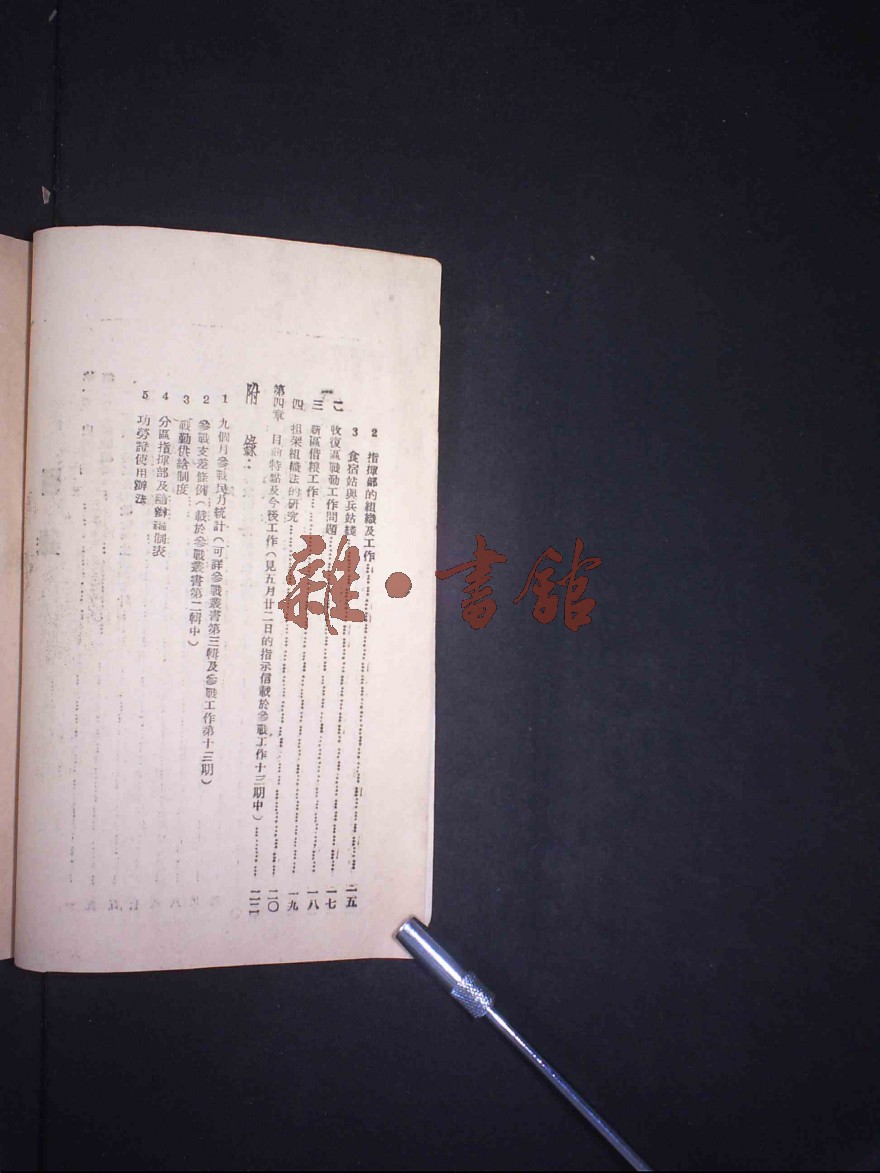 2 指揮部的組織及工作……一五
3 食宿站與兵站綫……一七
二 收復區戰勤工作問題……一八
三 新區借粮工作……一九
四 担架組織法的研究……二〇
第四章 目前特點及今後工作(見五月廿二日的指示信載於參戰工作十三期中)……二二
附 錄:
1 九個月參戰民力統計(可詳參戰叢書第三輯及參戰工作第十三期)
2 參戰支差條例(載於參戰叢書第二輯中)
3 戰勤供給制度
4 分區指揮部及編制表
5 功勞證使用辦法
雜·書館